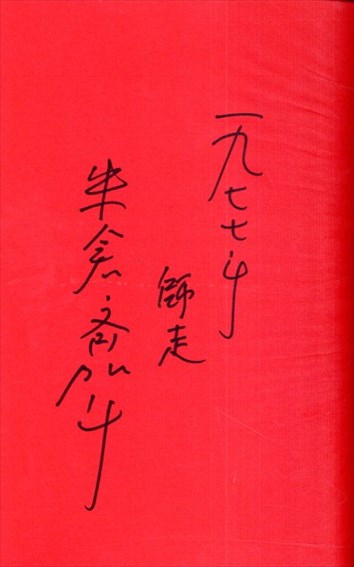 一九七七年
師走
米倉斉加年